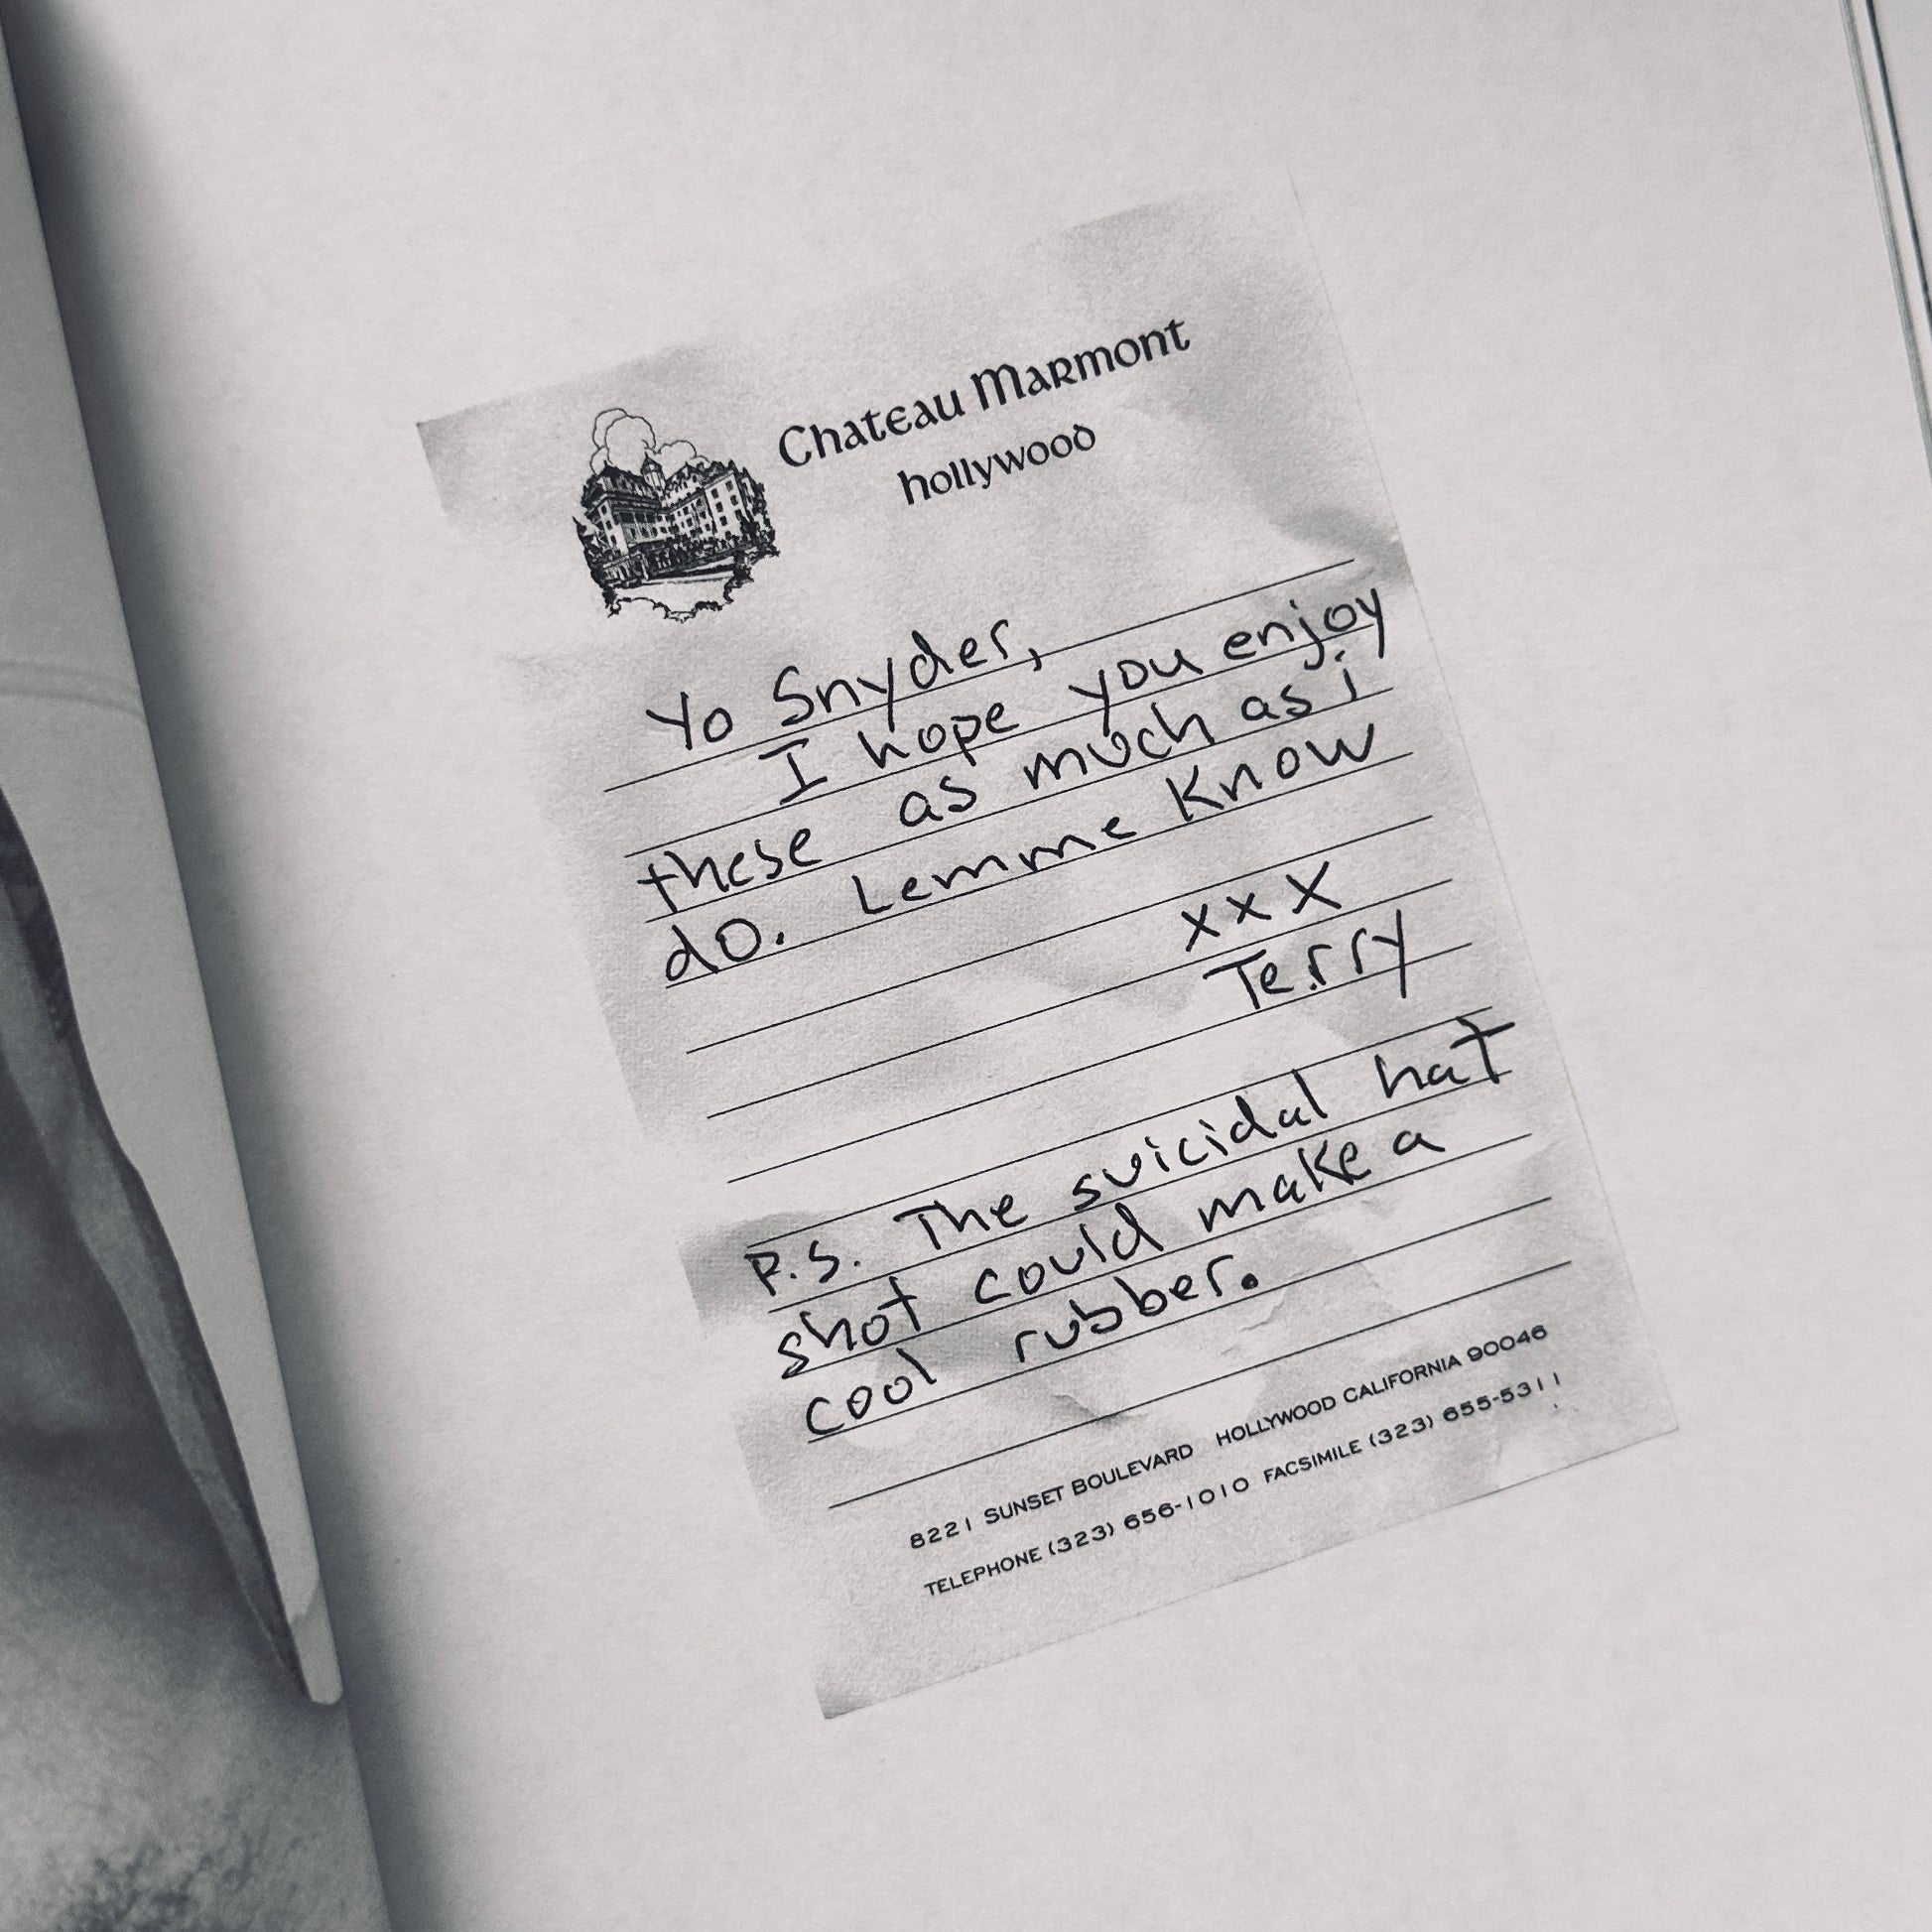 Chateau Marmont
hollywood
Yo Snyder,
I hope you enjoy
these as much as i
do. Lemme Know
xxX
Terry
P.S. The suicidal hat
shot could make a
cool rubber.
8221 SUNSET BOULEVARD HOLLYWOOD CALIFORNIA 90046
TELEPHONE (323) 656-1010 FACSIMILE (323) 655-5311